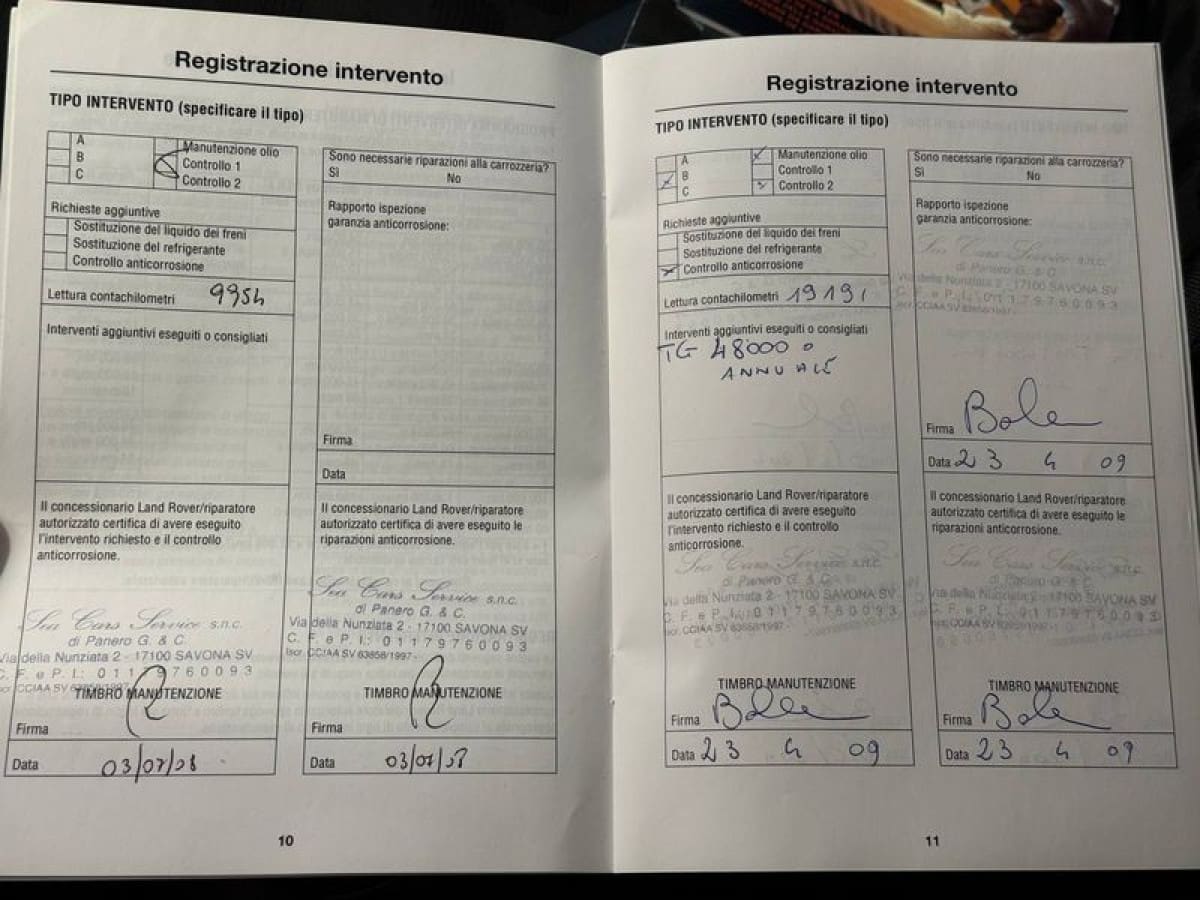 Registrazione intervento
TIPO INTERVENTO (specificare il tipo)
A
B
C
Manutenzione olio
Controllo 1
Controllo 2
Richieste aggiuntive
Sostituzione del liquido dei freni
Sostituzione del refrigerante
Controllo anticorrosione
Lettura contachilometri 9954
Interventi aggiuntivi eseguiti o consigliati
Il concessionario Land Rover/riparatore
autorizzato certifica di avere eseguito
l'intervento richiesto e il controllo
anticorrosione.
Sea Cars Service s.n.c.
di Panero G. & C.
Via della Nunziata 2 - 17100 SAVONA SV
C. F. e P. I.: 01179760093
Iscr. CCIAA SV 63858/1997
TIMBRO MANUTENZIONE
Firma
Data 03/07/08
Sono necessarie riparazioni alla carrozzeria?
Sì No
Rapporto ispezione
garanzia anticorrosione:
Firma
Data
Il concessionario Land Rover/riparatore
autorizzato certifica di avere eseguito le
riparazioni anticorrosione.
Sea Cars Service s.n.c.
di Panero G. & C.
Via della Nunziata 2 - 17100 SAVONA SV
C. F. e P. I.: 01179760093
Iscr. CCIAA SV 63858/1997 -
TIMBRO MANUTENZIONE
Firma
Data 03/07/08
10
Registrazione intervento
TIPO INTERVENTO (specificare il tipo)
A
B
C
Manutenzione olio
Controllo 1
Controllo 2
Richieste aggiuntive
Sostituzione del liquido dei freni
Sostituzione del refrigerante
Controllo anticorrosione
Lettura contachilometri 19191
Interventi aggiuntivi eseguiti o consigliati
TG 48000 o
ANNUALE
Il concessionario Land Rover/riparatore
autorizzato certifica di avere eseguito
l'intervento richiesto e il controllo
anticorrosione.
Sea Cars Service s.n.c.
di Panero G. & C.
Via della Nunziata 2 - 17100 SAVONA SV
C. F. e P. I.: 01179760093
Iscr. CCIAA SV 63858/1997 -
TIMBRO MANUTENZIONE
Firma
Data 23 4 09
Sono necessarie riparazioni alla carrozzeria?
Sì No
Rapporto ispezione
garanzia anticorrosione:
Sea Cars Service s.n.c.
di Panero G. & C.
Via della Nunziata 2 - 17100 SAVONA SV
C. F. e P. I.: 01179760093
Iscr. CCIAA SV 63858/1997 -
Firma
Data 23 4 09
Il concessionario Land Rover/riparatore
autorizzato certifica di avere eseguito le
riparazioni anticorrosione.
Sea Cars Service s.n.c.
di Panero G. & C.
Via della Nunziata 2 - 17100 SAVONA SV
C. F. e P. I.: 01179760093
Iscr. CCIAA SV 63858/1997 -
TIMBRO MANUTENZIONE
Firma
Data 23 4 09
11